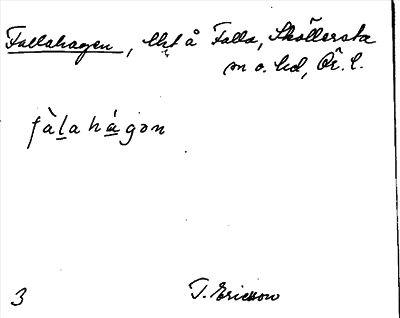 Fallahagen, lht å Falla, Sköllersta
sn o. hd, Ör. l.
fàlahágon
3
T. Ericsson